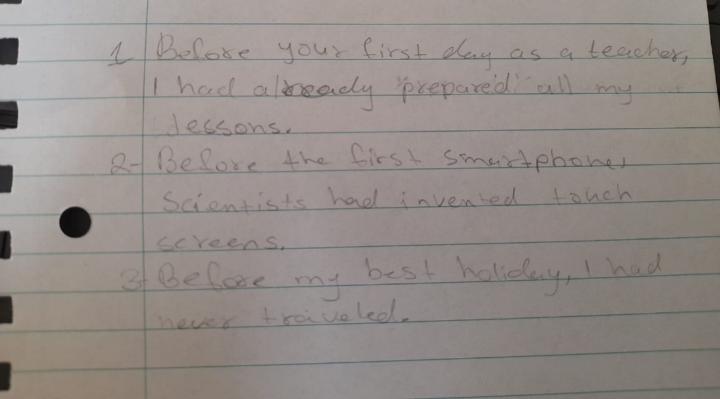 1 Before your first day as a teacher,
I had already "prepared" all my
lessons.
2- Before the first smartphone,
Scientists had invented touch
screens.
3- Before my best holiday, I had
never traiveled.